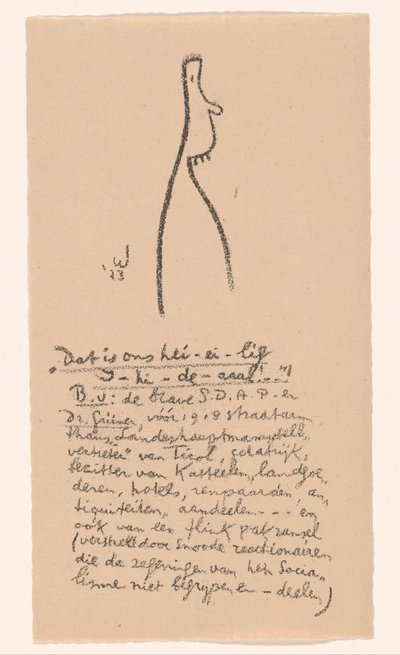 '23
„Dat is ons hei-ei-lig
I-hi-de-aaal!.."!
B.v: de brave S.D.A.P-er
Dr. Grüner, vóór 1918 straatarm,
thans „Landeshauptmannstell-
vertreter" van Tirol, schatrijk,
bezitter van Kasteelen, landgoe-
deren, hotels, renpaarden, an-
tiquiteiten, aandeelen - - - en
oók van een flink pak ransel
(verstrekt door snoode reactionairen
die de zegeningen van het Socia-
lisme niet begrypen en - deelen)